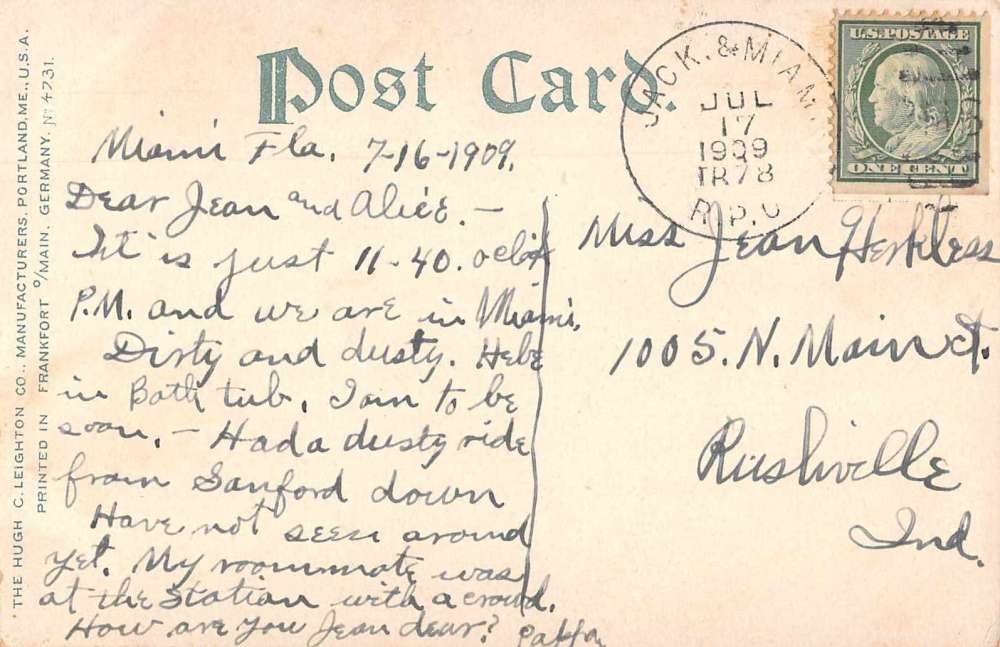 Post Card.
JACK. & MIAMI
JUL
17
1909
TR 78
R.P.O
U.S. POSTAGE
ONE CENT
THE HUGH C. LEIGHTON CO., MANUFACTURERS, PORTLAND, ME., U.S.A.
PRINTED IN FRANKFORT O/MAIN, GERMANY. No 4731.
Miami Fla. 7-16-1909.
Dear Jean and Alice. -
It is just 11-40. oclok
P.M. and we are in Miami.
Dirty and dusty. Hebe
in Bath tub. I am to be
soon. - Had a dusty ride
from Sanford down
Have not seen around
yet. My roommate was
at the Station with a crowd.
How are you Jean dear?
Miss Jean Herkless
1005. N. Main St.
Rushville
Ind.